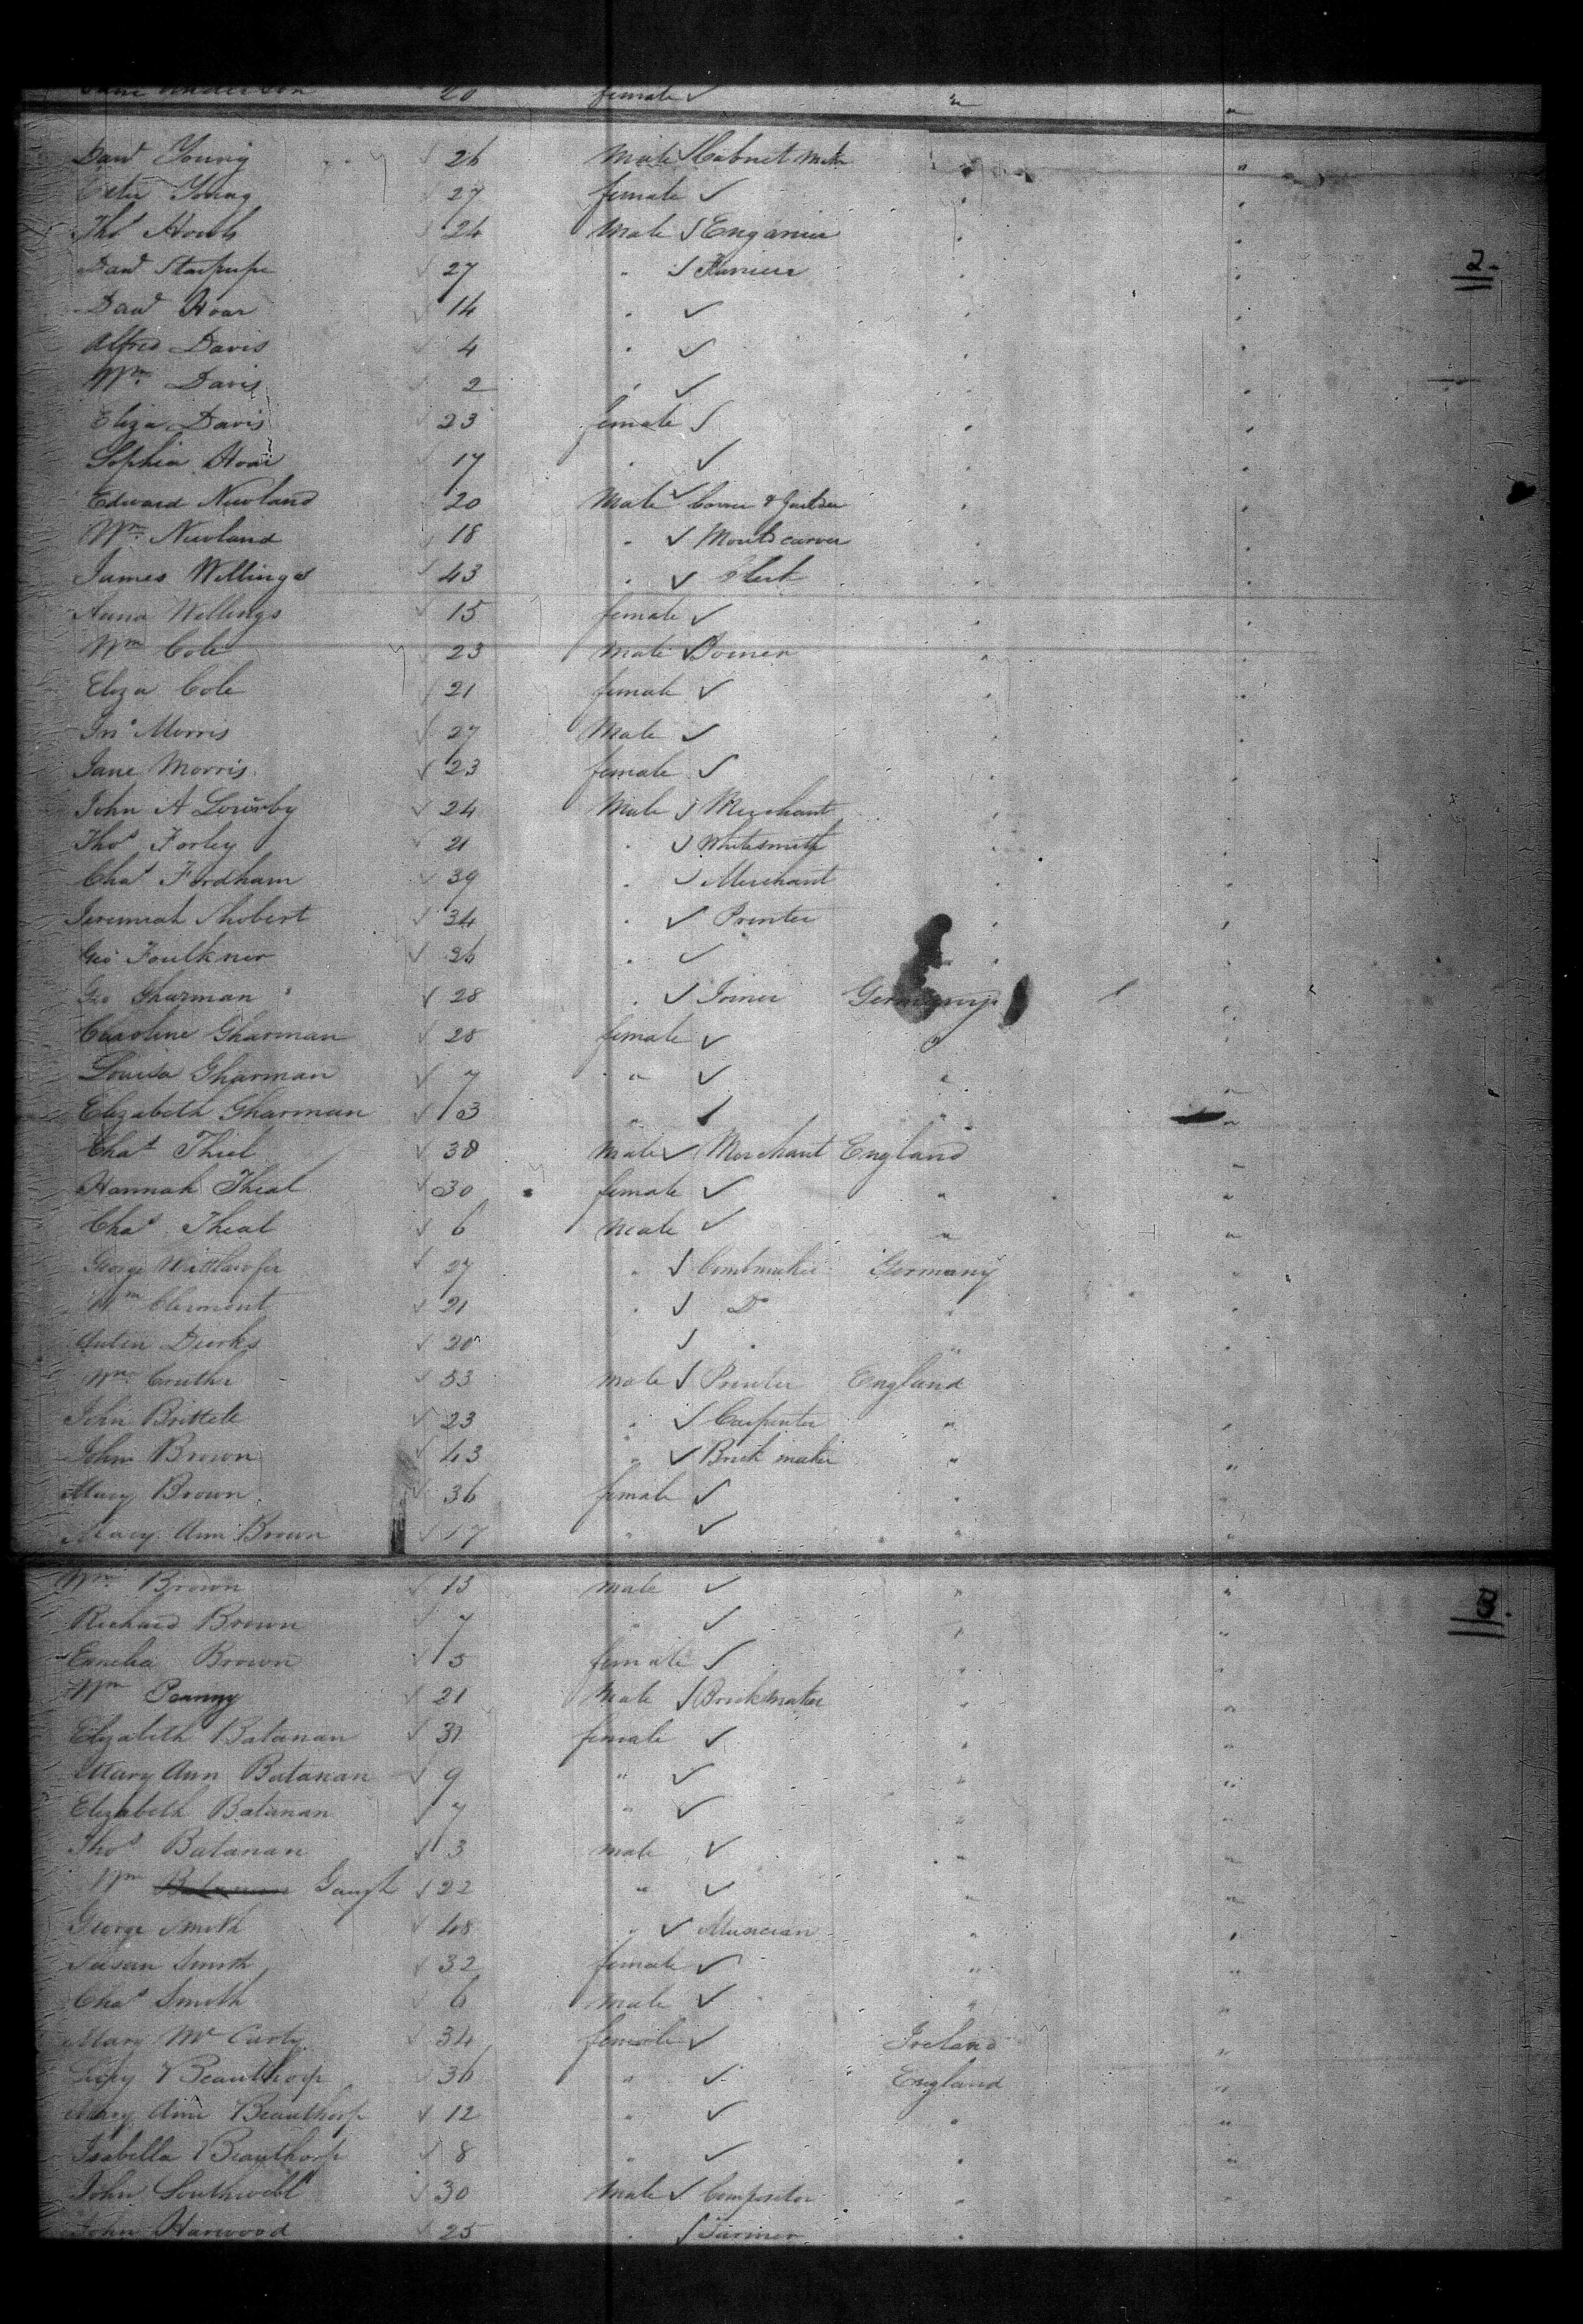 Jane Anderson 20 female "
Davd Young 26 Male Cabnet Maker "
Young 27 female "
Thos 24 Male Enganier "
2.
Davd 27 "
Davd Hoar 14 "
Alfred Davis 4 "
Wm Davis 2 "
Eliza Davis 23 female "
Sophia Hoar 17 "
Edward Newland 20 Male Carver & "
Wm Newland 18 " carver "
James Willings 43 " Clerk "
Anna Willings 15 female "
Wm Cole 23 Male Joiner "
Eliza Cole 21 female "
Jno Morris 27 Male "
Jane Morris 23 female "
John A 24 Male Merchant "
Thos Forley 21 " Whitesmith "
Chas Fordham 39 " Merchant "
Jeremiah Shobert 34 " Printer "
Geo Faulkner 36 "
Geo Gharman 28 " Joiner Germany
Caroline Gharman 28 female "
Louisa Gharman 7 " "
Elizabeth Gharman 3 " "
Chas Thiel 38 Male Merchant England
Hannah Theal 30 female "
Chas Theal 6 Male "
George 27 " Combmaker Germany
Wm Clermont 21 " Do "
Dierks 20 "
Wm 53 male Printer England
John 23 " Carpenter "
John Brown 43 " Brick maker "
Mary Brown 36 female "
Mary Ann Brown 17 " "
Wm Brown 13 male "
3.
Richard Brown 7 " "
Brown 5 female "
Wm 21 Male Brickmaker "
Elizabeth Batanan 31 female "
Mary Ann Batanan 9 " "
Elizabeth Batanan 7 " "
Thos Batanan 3 male "
Wm Gaugh 22 " "
George Smith 48 " Musician "
Susan Smith 32 female "
Chas Smith 6 Male "
Mary McCarty 34 female Ireland "
Beauthorp 36 " England "
Mary Ann Beauthorp 12 " "
Isabella Beauthorp 8 " "
John Southwell 30 Male Compositor "
John Harwood 25 " Farmer "